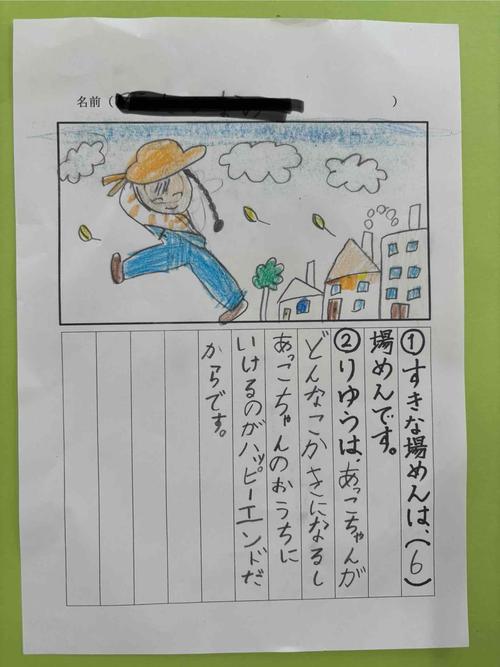 名前（ ）
①すきな場めんは、(6)
場めんです。
②りゆうは、あっこちゃんが
どんなこかきになるし
あっこちゃんのおうちに
いけるのがハッピーエンドだ
からです。